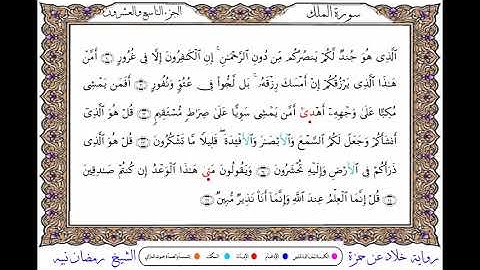 سورة الملك
الجزء التاسع والعشرون
ٱلَّذِى هُوَ جُندٌ لَّكُمْ يَنصُرُكُم مِّن دُونِ ٱلرَّحْمَٰنِ ۚ إِنِ ٱلْكَٰفِرُونَ إِلَّا فِى غُرُورٍ ۝ أَمَّنْ
هَٰذَا ٱلَّذِى يَرْزُقُكُمْ إِنْ أَمْسَكَ رِزْقَهُۥ ۚ بَل لَّجُّوا۟ فِى عُتُوٍّ وَنُفُورٍ ۝ أَفَمَن يَمْشِى
مُكِبًّا عَلَىٰ وَجْهِهِۦٓ أَهْدَىٰٓ أَمَّن يَمْشِى سَوِيًّا عَلَىٰ صِرَٰطٍ مُّسْتَقِيمٍ ۝ قُلْ هُوَ ٱلَّذِىٓ
أَنشَأَكُمْ وَجَعَلَ لَكُمُ ٱلسَّمْعَ وَٱلْأَبْصَٰرَ وَٱلْأَفْـِٔدَةَ ۖ قَلِيلًا مَّا تَشْكُرُونَ ۝ قُلْ هُوَ ٱلَّذِى
ذَرَأَكُمْ فِى ٱلْأَرْضِ وَإِلَيْهِ تُحْشَرُونَ ۝ وَيَقُولُونَ مَتَىٰ هَٰذَا ٱلْوَعْدُ إِن كُنتُمْ صَٰدِقِينَ
۝ قُلْ إِنَّمَا ٱلْعِلْمُ عِندَ ٱللَّهِ وَإِنَّمَآ أَنَا۠ نَذِيرٌ مُّبِينٌ ۝
رواية خلاد عن حمزة
الشيخ رمضان نبيه